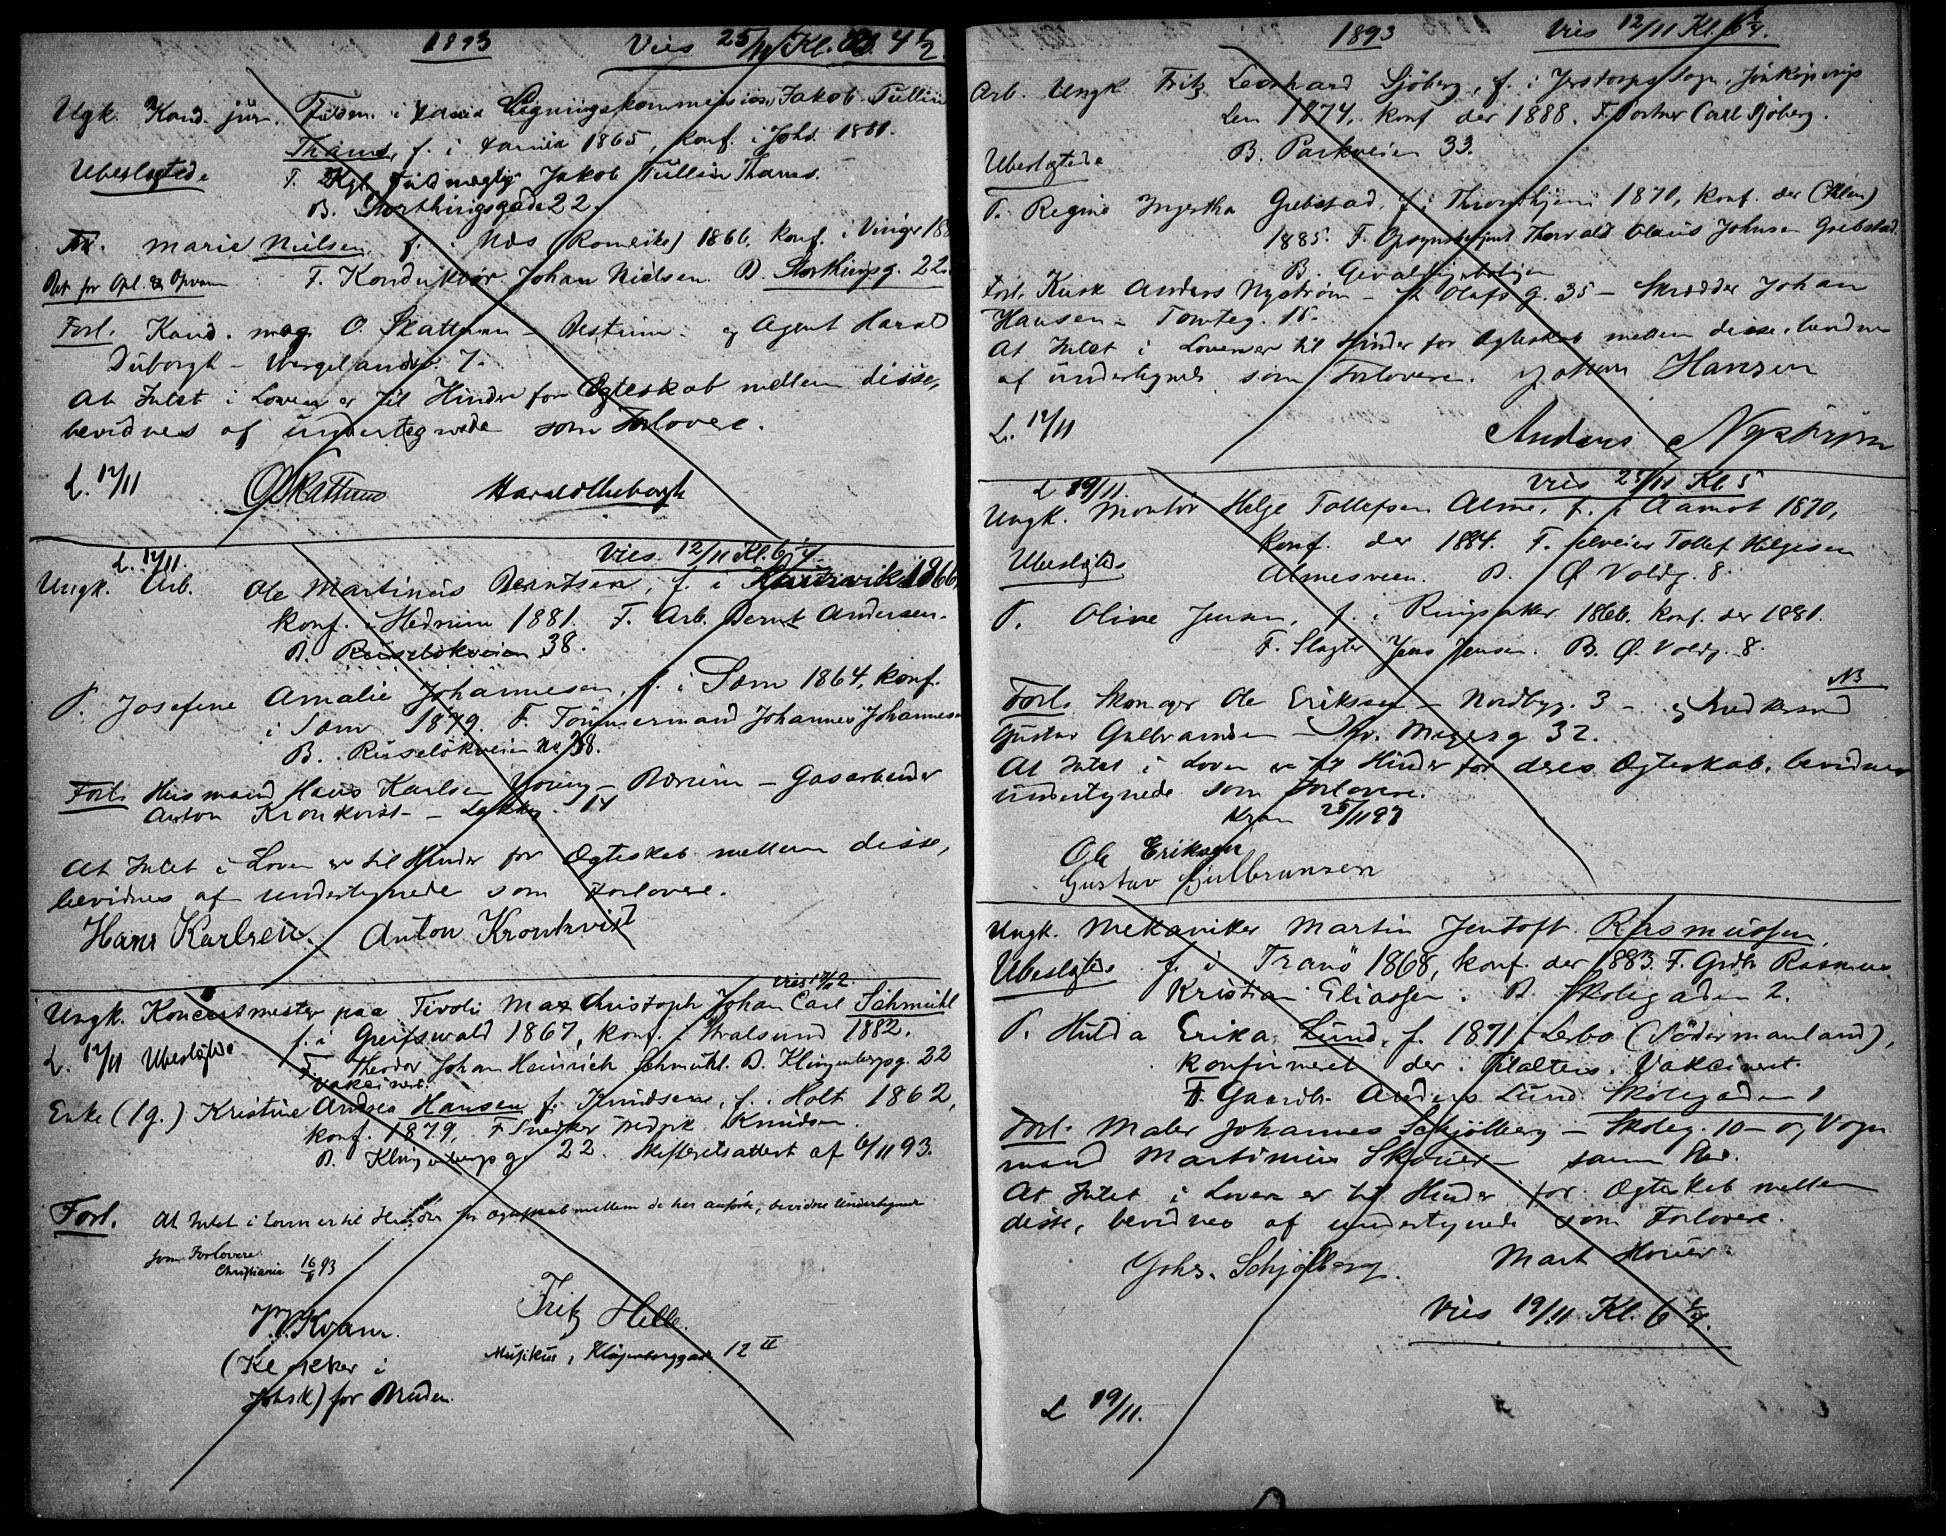 1893 Vies 25/11 Kl. 4 1/2
Ugk. Kand. jur. i Ligningskommission Jakob Tullin
Thams, f. i 1865, konf. i Johs. 1881.
Ubeslegtede F. Kgl. Fuldmægtig Jakob Tullin Thams.
B. Storthingsgade 22.
Frk. Marie Nielsen, f. i Nes (Romerike) 1866, konf. i Vinger 188
Det for Opl. & F. Konduktør Johan Nielsen. B. Storthingsg. 22.
Forl. Kand. mag. O. Skattum – Bestum – og Agent Harald
Duborgh – 7.
At Intet i Loven er til Hinder for Ægteskab mellem disse,
bevidnes af undertegnede som Forlovere.
L. 12/11 O Skattum Harald Duborgh
L. 12/11. Vies 12/11 Kl. 6 1/4
Ungk. Arb. Ole Martinus Berntsen, f. i 1866,
konf. i Hedrum 1881. F. Arb. Bernt Andersen.
B. Ruseløkveien 38.
P. Josefine Amalie Johannesen, f. i Sem 1864, konf.
i Sem 1879. F. Tømmermand Johannes Johannesen
B. Ruseløkveien no 38.
Forl. Husmand Hans Karlsen – Bærum – Gasarbeider
Anton Kronkvist – 14
At Intet i Loven er til Hinder for Ægteskab mellem disse,
bevidnes af undertegnede som Forlovere.
Hans Karlsen. Anton Kronkvist
Vies 12
Ungk. Koncertmester paa Tivoli Max Christoph Johan Carl Schmuhl
f. i Greifswald 1867, konf. i Stralsund 1882.
L. 12/11 Ubeslegtede F. Theodor Johan Heinrich Schmuhl. B. Klingenbergg. 22
Vakcinert.
Enke (1g.) Kristine Andrea Hansen f. Knudsen, f. Holt 1862,
konf. 1879, F. Snedker Fredrik Knudsen.
B. Klingenbergsg. 22. Skifteretsattest af 6/11 93.
Forl. At Intet i Loven er til Hinder for Ægteskab mellem de her anførte, bevidnes undertegnede
som Forlovere.
Christiania 16/11 93
Kvam. Fritz Helle.
(Klokker i Musikus, Klingenberggade 12 II
Johsk) for Bruden.
1893 Vies 12/11 Kl. 6 1/4.
Arb. Ungk. Fritz Leonhard Sjöberg, f. i Sogn, Jönkøpings
Len 1874, konf. der 1888. F. Portner Carl Sjöberg.
Ubeslegtede B. Parkveien 33.
P. Regine Grebstad, f. i Throndhjem 1870, konf. der
1885. F. Opsynsbetjent Thorvald Claus Johnsen Grebstad
B.
Forl. Kusk Anders Nyström – St. Olafs g. 35 – Skrædder Johan
Hansen – Tomteg. 15.
At Intet i Loven er til Hinder for Ægteskab mellem disse, bevidnes
af undertegnede som Forlovere. Johan Hansen
L. 12/11 Anders Nyström
L 19/11. Vies 25/11 Kl. 5
Ungk. Montør Helge Tollefsen Alme, f. i Aamot 1870,
konf. der 1884. F. Selveier Tollef Helgesen
Ubeslegtede Almesveen. B. Ø Voldg. 8.
P. Oline Jensen, f. i Ringsaker 1866, konf. der 1881.
F. Slagter Jens Jensen. B. Ø. Voldg. 8.
NB
Forl. Skomager Ole Eriksen – Nordbyg. 3 – og
Gustav Gulbransen – Thv. Meyersg 32.
At Intet i Loven er til Hinder for deres Ægteskab, bevidnes
undertegnede som Forlovere.
Kra 25/11 93
Ole Eriksen
Gustav Gulbransen
Ungk. Mekaniker Martin Jentoft Rasmussen,
Ubeslegtede f. i Tranö 1868, konf. der 1883. F. Gdbr. Rasmus
Kristian Eliassen. B. Skolegaden 2.
P. Hulda Erika Lund, f. 1871 i Lerbo (Södermanland),
konfirmeret der. Vakcineret.
F. Gaardbr. Anders Lund. Skolegaden 1
Forl. Maler Johannes Schjølberg – Skoleg. 10 – og Vogn
mand Martinius – samme Sted.
At Intet i Loven er til Hinder for Ægteskab mellem
disse, bevidnes af undertegnede som Forlovere.
Johs. Schjølberg. Mart
Vies 19/11 Kl. 6 1/4.
L 19/11.